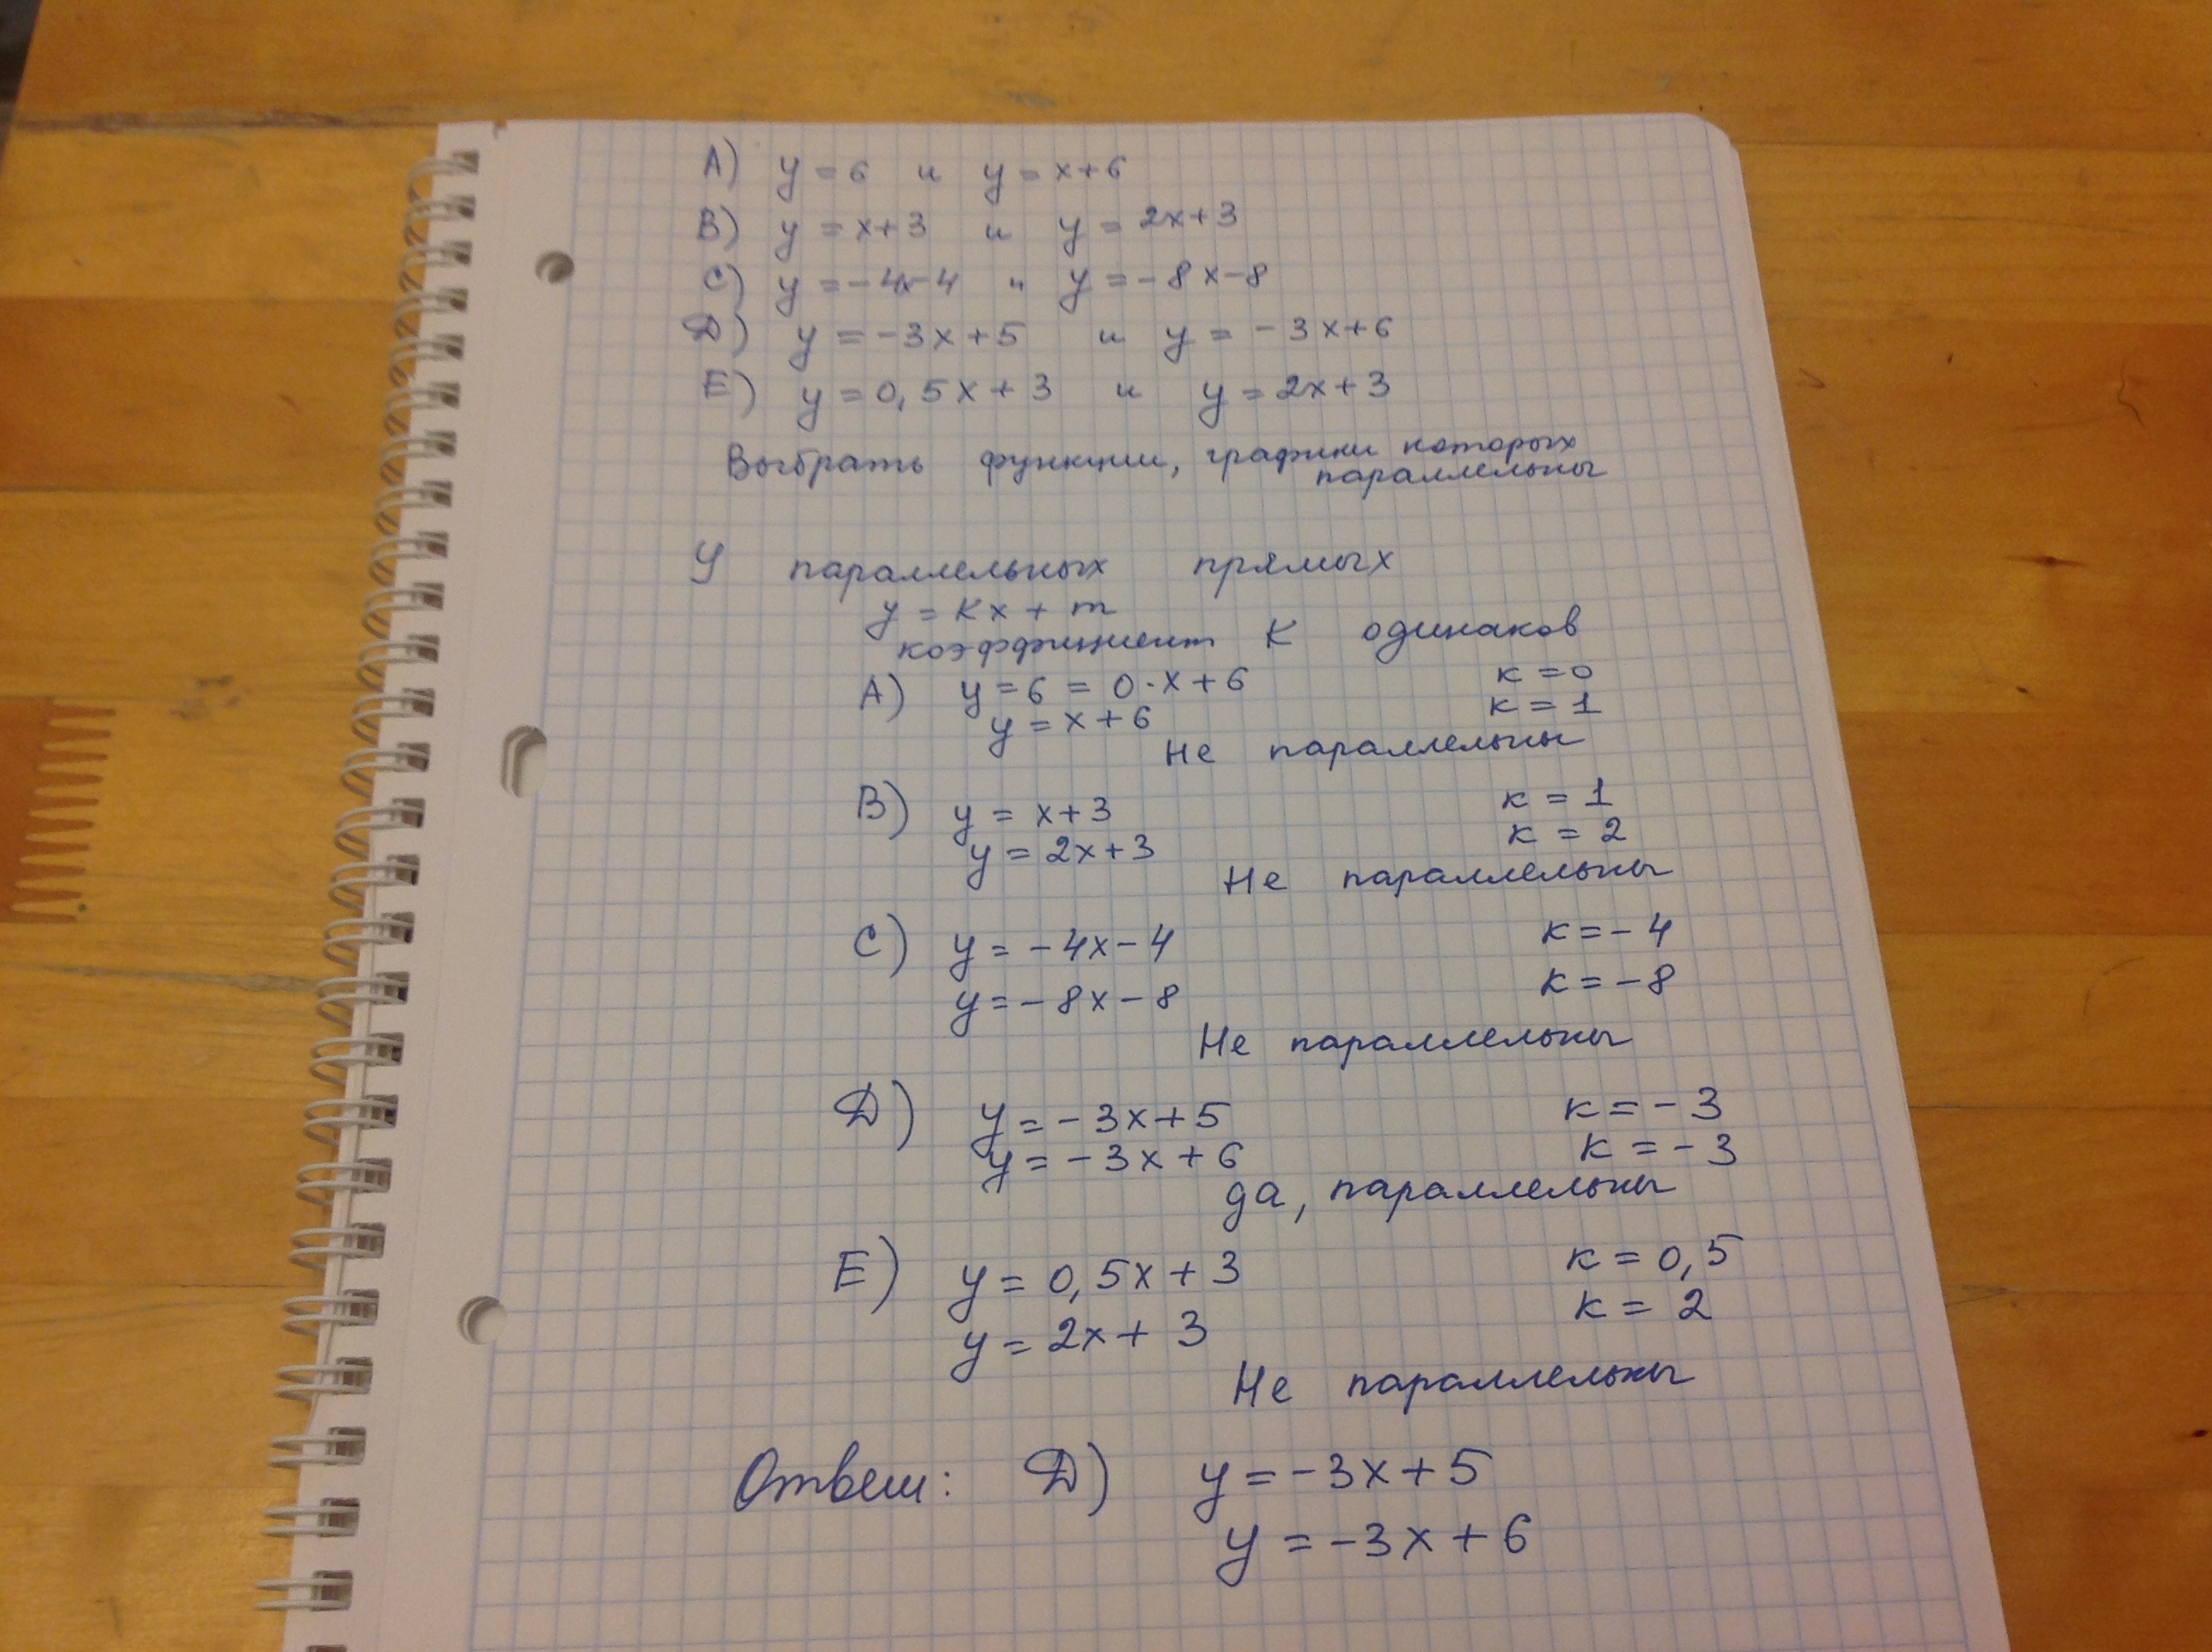 А) y = 6 и y = x+6
В) y = x+3 и y = 2x+3
С) y = -4x-4 и y = -8x-8
Д) y = -3x+5 и y = -3x+6
Е) y = 0,5x+3 и y = 2x+3
Выбрать функции, графики которых
параллельны
У параллельных прямых
y = kx + m
коэффициент К одинаков
А) y = 6 = 0·x+6 к = 0
y = x+6 к = 1
Не параллельны
В) y = x+3 к = 1
y = 2x+3 к = 2
Не параллельны
С) y = -4x-4 к = -4
y = -8x-8 к = -8
Не параллельны
Д) y = -3x+5 к = -3
y = -3x+6 к = -3
да, параллельны
Е) y = 0,5x+3 к = 0,5
y = 2x+3 к = 2
Не параллельны
Ответ: Д) y = -3x+5
y = -3x+6